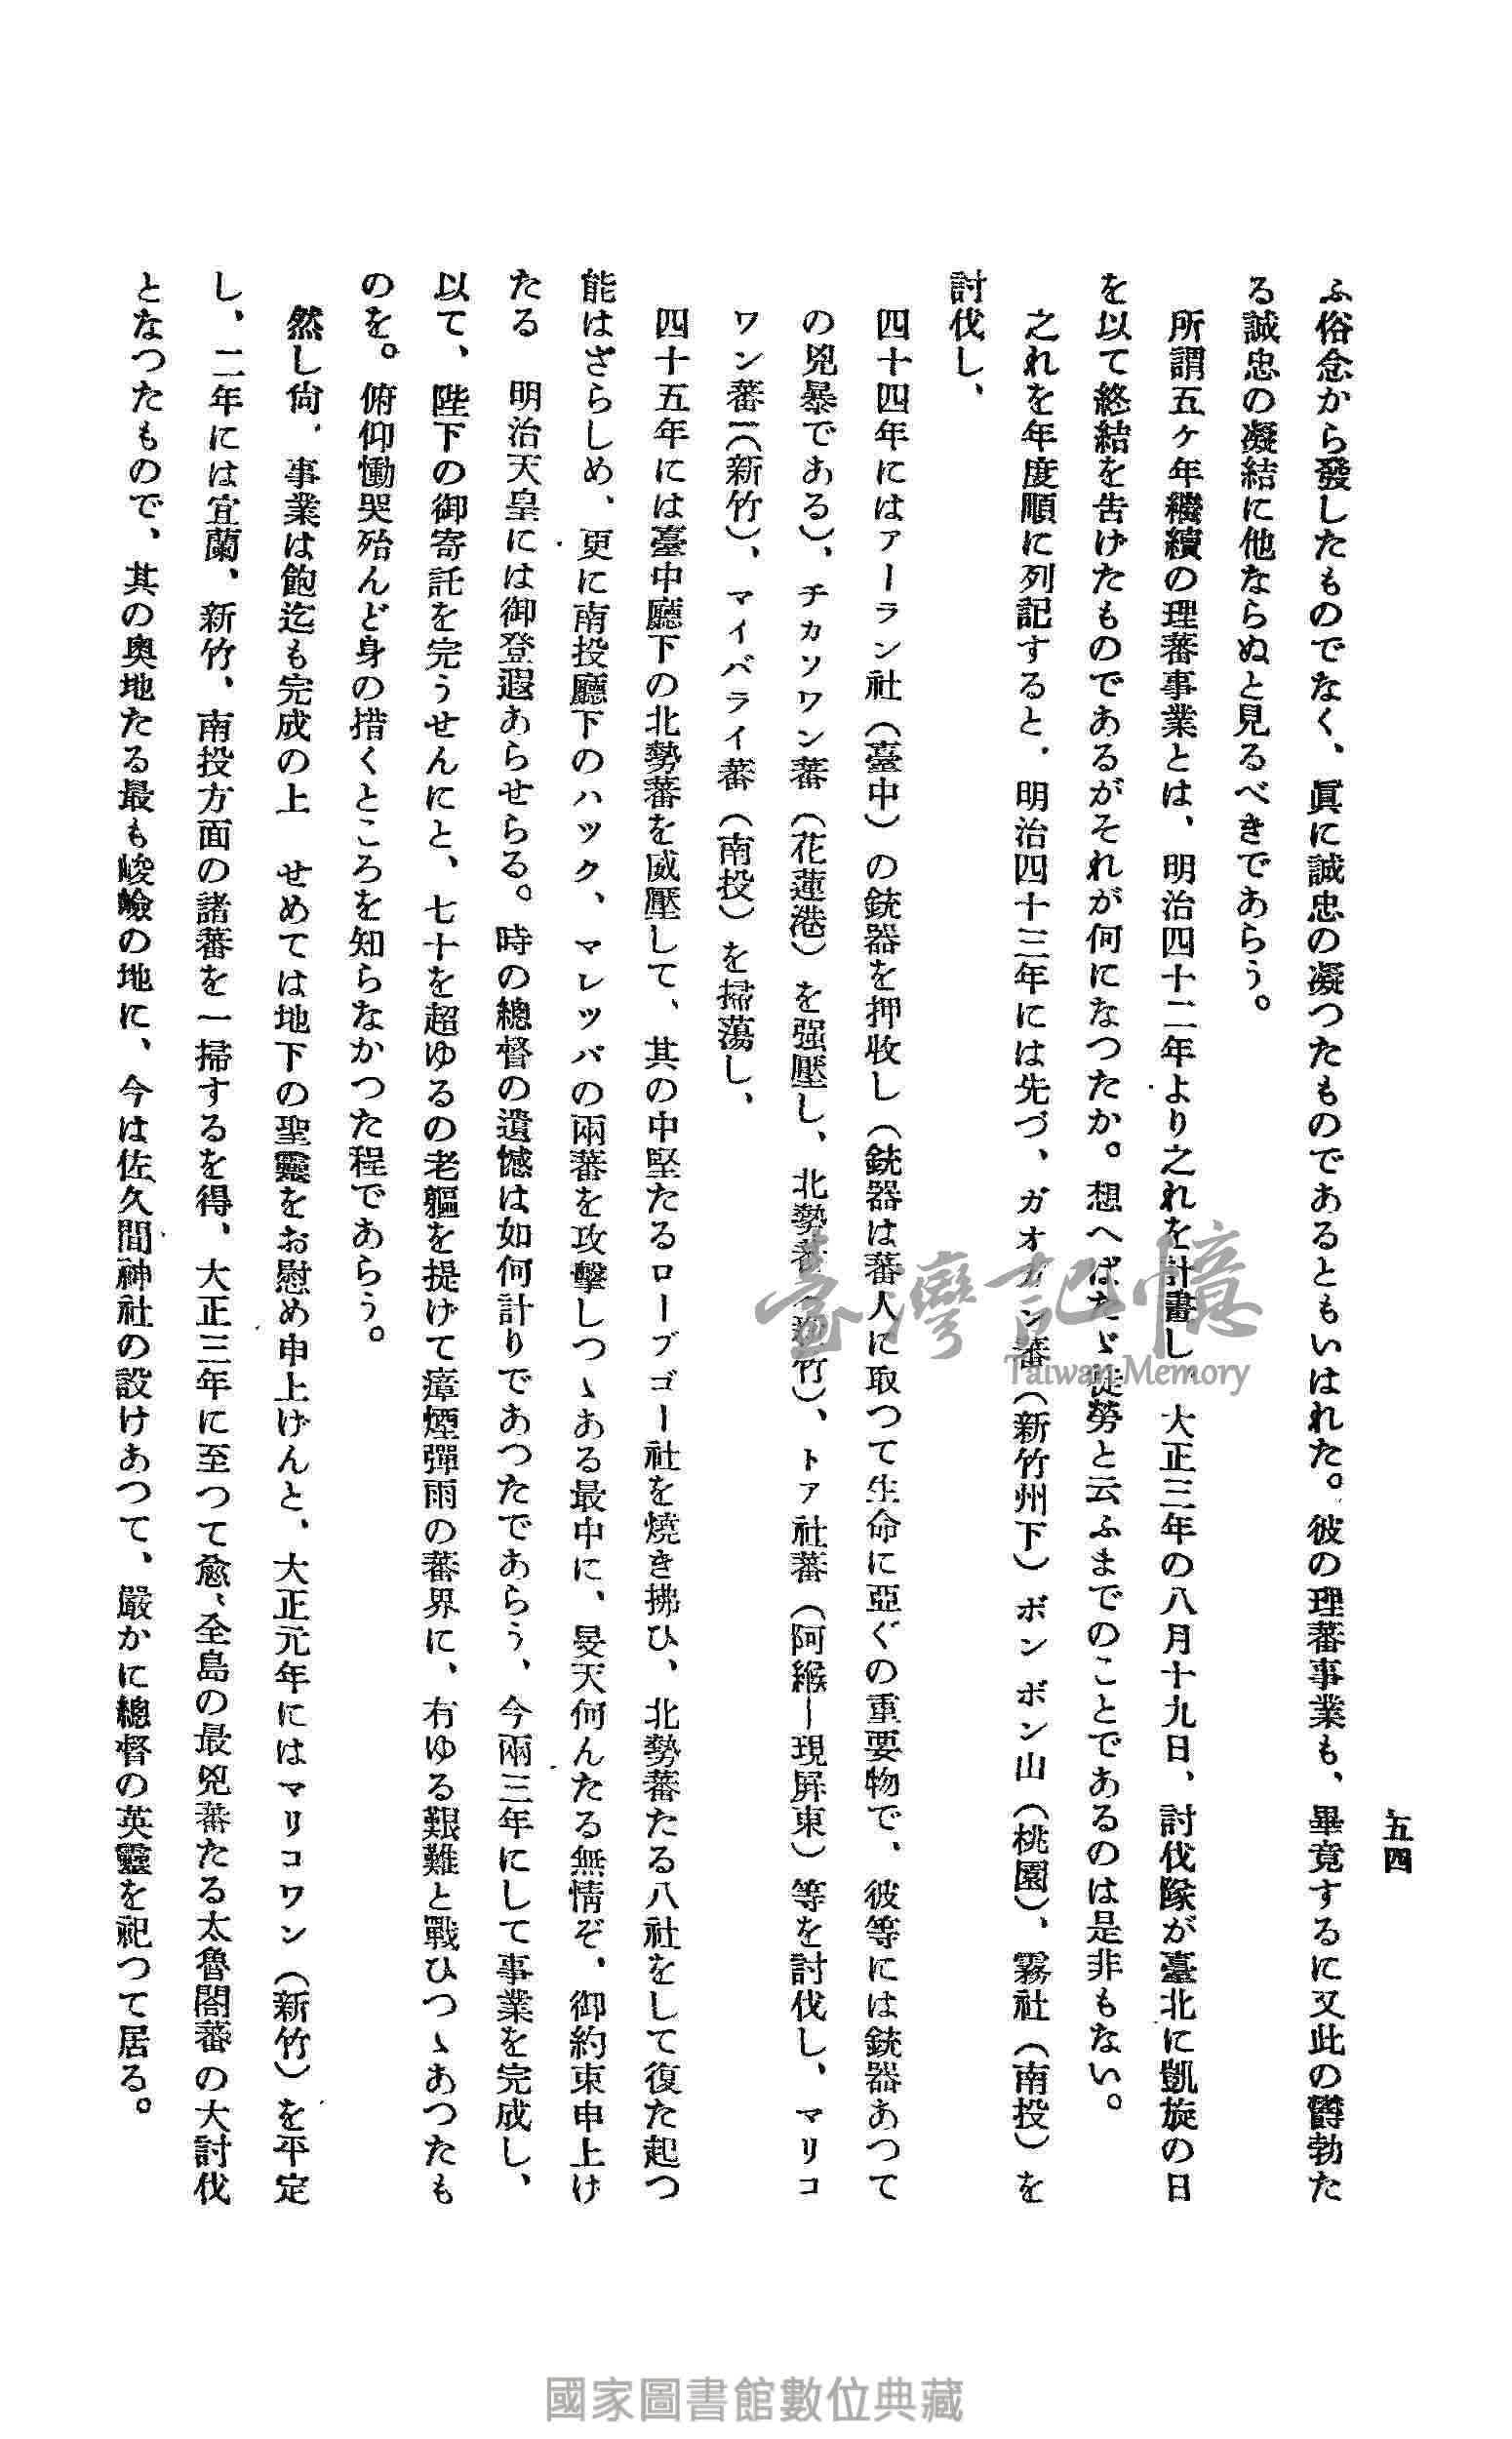 五四
ふ俗念から發したものでなく、眞に誠忠の凝つたものであるともいはれた。彼の理蕃事業も、畢竟するに又此の鬱勃た
る誠忠の凝結に他ならぬと見るべきであらう。
所謂五ヶ年繼續の理蕃事業とは、明治四十二年より之れを計畫し、大正三年の八月十九日、討伐隊が臺北に凱旋の日
を以て終結を告げたものであるがそれが何になつたか。想へばたゞ徒勞と云ふまでのことであるのは是非もない。
之れを年度順に列記すると、明治四十三年には先づ、ガオガン蕃（新竹州下）ボンボン山（桃園）、霧社（南投）を
討伐し、
四十四年にはアーラン社（臺中）の銃器を押收し（銃器は蕃人に取つて生命に亞ぐの重要物で、彼等には銃器あつて
の兇暴である）、チカソワン蕃（花蓮港）を强壓し、北勢蕃（新竹）、トア社蕃（阿緱ー現屛東）等を討伐し、マリコ
ワン蕃（新竹）、マイバライ蕃（南投）を掃蕩し、
四十五年には臺中廳下の北勢蕃を威壓して、其の中堅たるローブゴー社を燒き拂ひ、北勢蕃たる八社をして復た起つ
能はざらしめ、更に南投廳下のハック、マレッパの兩蕃を攻擊しつゝある最中に、旻天何んたる無情ぞ、御約束申上け
たる　明治天皇には御登遐あらせらる。時の總督の遺憾は如何計りであつたであらう、今兩三年にして事業を完成し、
以て、陛下の御寄託を完うせんにと、七十を超ゆるの老軀を提げて瘴煙彈雨の蕃界に、有ゆる艱難と戰ひつゝあつたも
のを。俯仰慟哭殆んど身の措くところを知らなかつた程であらう。
然し尙、事業は飽迄も完成の上　せめては地下の聖靈をお慰め申上げんと、大正元年にはマリコワン（新竹）を平定
し、二年には宜蘭、新竹、南投方面の諸蕃を一掃するを得、大正三年に至つて愈、全島の最兇蕃たる太魯閣蕃の大討伐
となつたもので、其の奧地たる最も峻嶮の地に、今は佐久間神社の設けあつて、嚴かに總督の英靈を祀つて居る。
臺灣記憶
Taiwan Memory
國家圖書館數位典藏